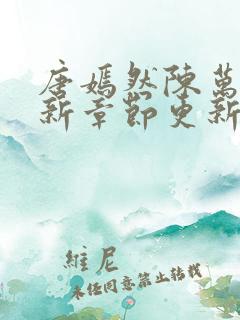 唐嫣然陳萬
新章節更新
維尼
未經同意禁止轉載